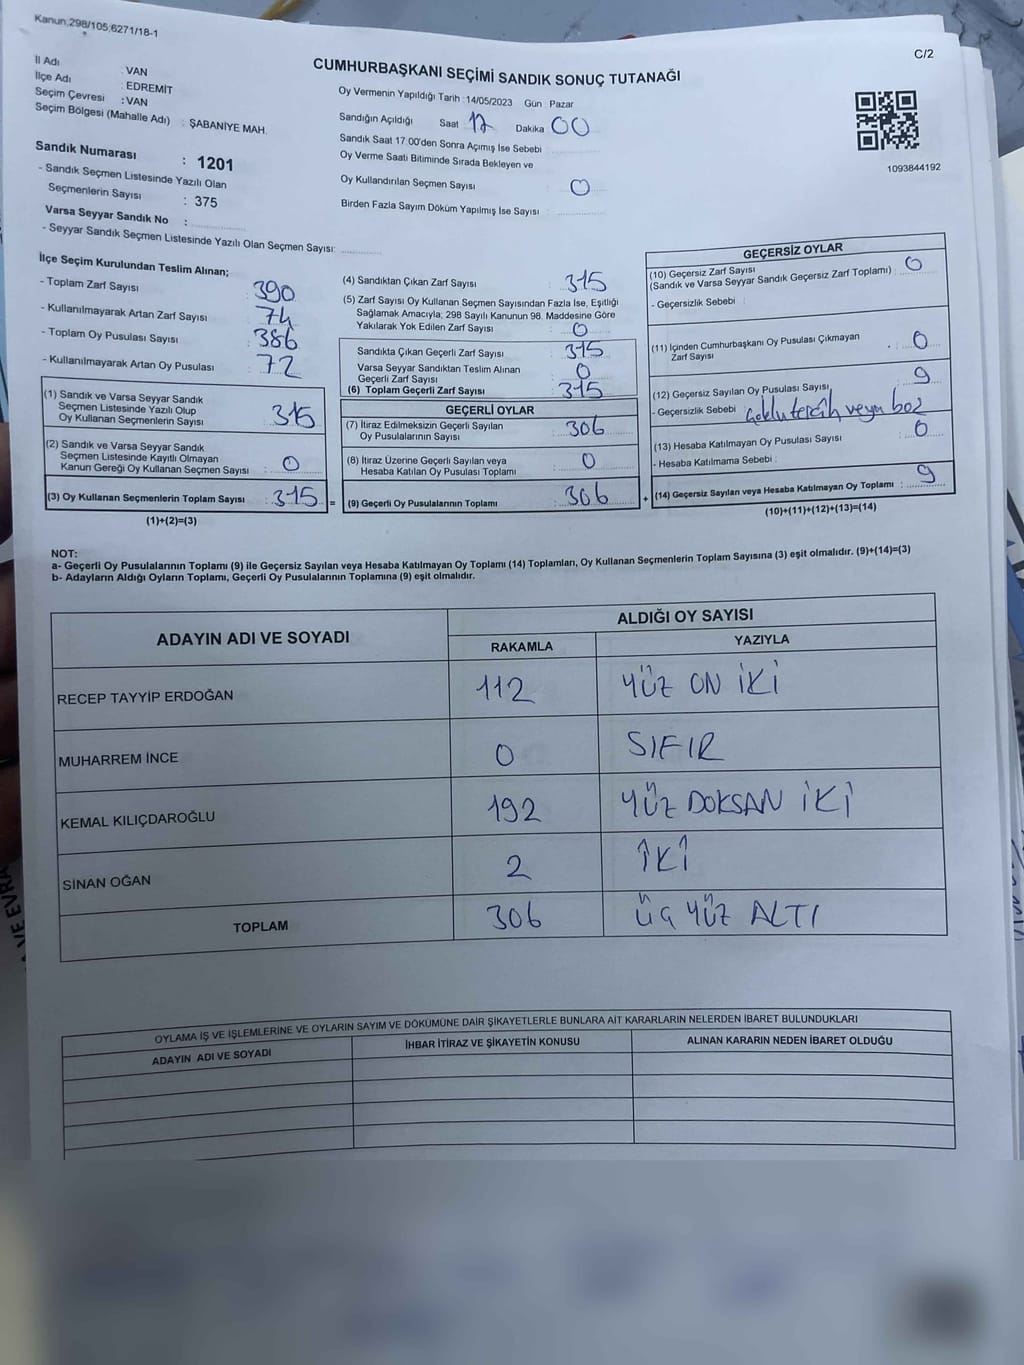 Kanun,298/105;6271/18-1
C/2
CUMHURBAŞKANI SEÇİMİ SANDIK SONUÇ TUTANAĞI
İl Adı : VAN
İlçe Adı : EDREMİT
Seçim Çevresi : VAN
Seçim Bölgesi (Mahalle Adı) : ŞABANİYE MAH.
Sandık Numarası : 1201
- Sandık Seçmen Listesinde Yazılı Olan
Seçmenlerin Sayısı : 375
Varsa Seyyar Sandık No :
- Seyyar Sandık Seçmen Listesinde Yazılı Olan Seçmen Sayısı:
Oy Vermenin Yapıldığı Tarih : 14/05/2023 Gün : Pazar
Sandığın Açıldığı Saat 17 Dakika 00
Sandık Saat 17 00'den Sonra Açımış İse Sebebi
Oy Verme Saati Bitiminde Sırada Bekleyen ve
Oy Kullandırılan Seçmen Sayısı : 0
Birden Fazla Sayım Döküm Yapılmış İse Sayısı :
1093844192
İlçe Seçim Kurulundan Teslim Alınan;
- Toplam Zarf Sayısı : 390
- Kullanılmayarak Artan Zarf Sayısı : 74
- Toplam Oy Pusulası Sayısı : 386
- Kullanılmayarak Artan Oy Pusulası : 72
(1) Sandık ve Varsa Seyyar Sandık
Seçmen Listesinde Yazılı Olup
Oy Kullanan Seçmenlerin Sayısı : 315
(2) Sandık ve Varsa Seyyar Sandık
Seçmen Listesinde Kayıtlı Olmayan
Kanun Gereği Oy Kullanan Seçmen Sayısı : 0
(3) Oy Kullanan Seçmenlerin Toplam Sayısı : 315 =
(1)+(2)=(3)
(4) Sandıktan Çıkan Zarf Sayısı : 315
(5) Zarf Sayısı Oy Kullanan Seçmen Sayısından Fazla İse, Eşitliği
Sağlamak Amacıyla; 298 Sayılı Kanunun 98. Maddesine Göre
Yakılarak Yok Edilen Zarf Sayısı : 0
Sandıkta Çıkan Geçerli Zarf Sayısı : 315
Varsa Seyyar Sandıktan Teslim Alınan
Geçerli Zarf Sayısı : 0
(6) Toplam Geçerli Zarf Sayısı : 315
GEÇERLİ OYLAR
(7) İtiraz Edilmeksizin Geçerli Sayılan
Oy Pusulalarının Sayısı : 306
(8) İtiraz Üzerine Geçerli Sayılan veya
Hesaba Katılan Oy Pusulası Toplamı : 0
(9) Geçerli Oy Pusulalarının Toplamı : 306 +
GEÇERSİZ OYLAR
(10) Geçersiz Zarf Sayısı
(Sandık ve Varsa Seyyar Sandık Geçersiz Zarf Toplamı) : 0
- Geçersizlik Sebebi :
(11) İçinden Cumhurbaşkanı Oy Pusulası Çıkmayan
Zarf Sayısı : 0
(12) Geçersiz Sayılan Oy Pusulası Sayısı : 9
- Geçersizlik Sebebi Çoklu tercih veya boş
(13) Hesaba Katılmayan Oy Pusulası Sayısı : 0
- Hesaba Katılmama Sebebi :
(14) Geçersiz Sayılan veya Hesaba Katılmayan Oy Toplamı : 9
(10)+(11)+(12)+(13)=(14)
NOT:
a- Geçerli Oy Pusulalarının Toplamı (9) ile Geçersiz Sayılan veya Hesaba Katılmayan Oy Toplamı (14) Toplamları, Oy Kullanan Seçmenlerin Toplam Sayısına (3) eşit olmalıdır. (9)+(14)=(3)
b- Adayların Aldığı Oyların Toplamı, Geçerli Oy Pusulalarının Toplamına (9) eşit olmalıdır.
ADAYIN ADI VE SOYADI
ALDIĞI OY SAYISI
RAKAMLA YAZIYLA
RECEP TAYYİP ERDOĞAN 112 YÜZ ON İKİ
MUHARREM İNCE 0 SIFIR
KEMAL KILIÇDAROĞLU 192 YÜZ DOKSAN İKİ
SİNAN OĞAN 2 İKİ
TOPLAM 306 ÜÇ YÜZ ALTI
OYLAMA İŞ VE İŞLEMLERİNE VE OYLARIN SAYIM VE DÖKÜMÜNE DAİR ŞİKAYETLERLE BUNLARA AİT KARARLARIN NELERDEN İBARET BULUNDUKLARI
ADAYIN ADI VE SOYADI İHBAR İTİRAZ VE ŞİKAYETİN KONUSU ALINAN KARARIN NEDEN İBARET OLDUĞU